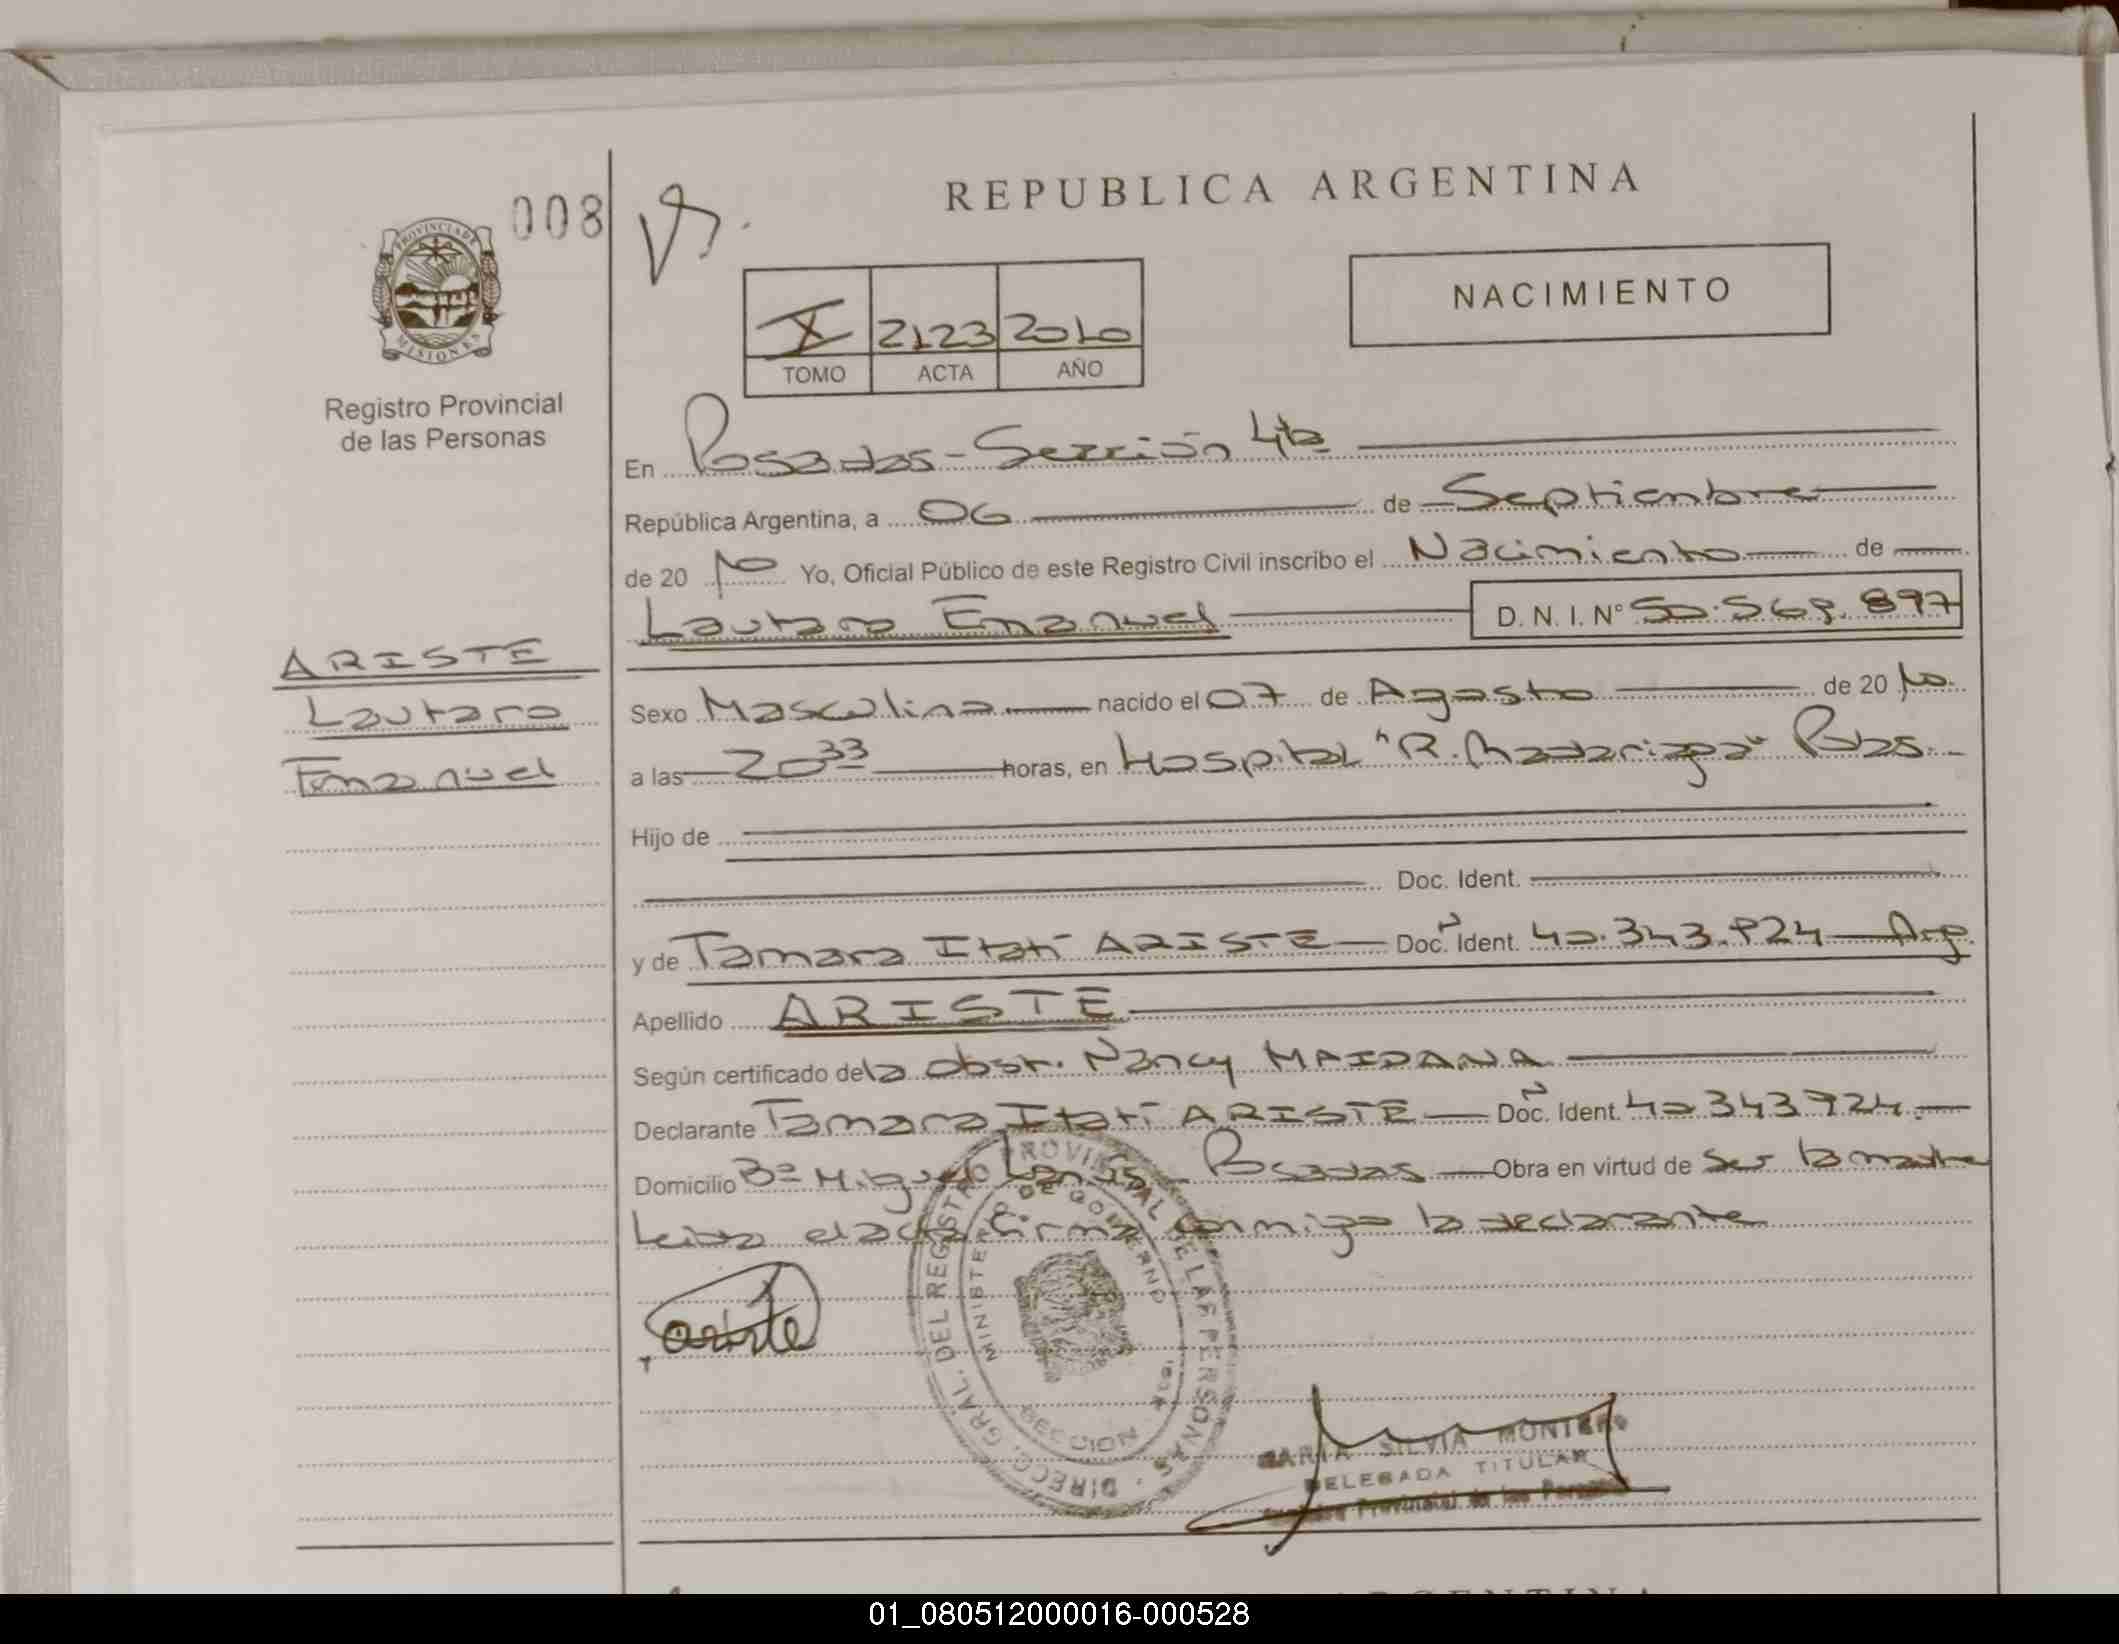 REPUBLICA ARGENTINA
008
PROVINCIA DE MISIONES
Registro Provincial
de las Personas
NACIMIENTO
X 2123 2010
TOMO ACTA AÑO
En Posadas - Sección 4ta
República Argentina, a 06 de Septiembre
de 20 10 Yo, Oficial Público de este Registro Civil inscribo el Nacimiento de
Lautaro Emanuel D. N. I. N° 50.568.897
ARISTE
Lautaro
Emanuel
Sexo Masculino nacido el 07 de Agosto de 20 10
a las 20 33 horas, en Hospital "R. Madariaga" Pdas.
Hijo de
Doc. Ident.
y de Tamara Itatí ARISTE Doc. Ident. 40.343.924 Arg.
Apellido ARISTE
Según certificado de la obst. Nancy MAIDANA
Declarante Tamara Itatí ARISTE Doc. Ident. 40343924
Domicilio Bº Miguel Lanús Posadas Obra en virtud de ser la madre
Leída el acta firma conmigo la declarante
ariste
DIREC. GRAL. DEL REGISTRO PROVINCIAL DE LAS PERSONAS
MINISTERIO DE GOBIERNO
SECCION
MARIA SILVIA MONTERO
DELEGADA TITULAR
Registro Provincial de las Personas
01_080512000016-000528